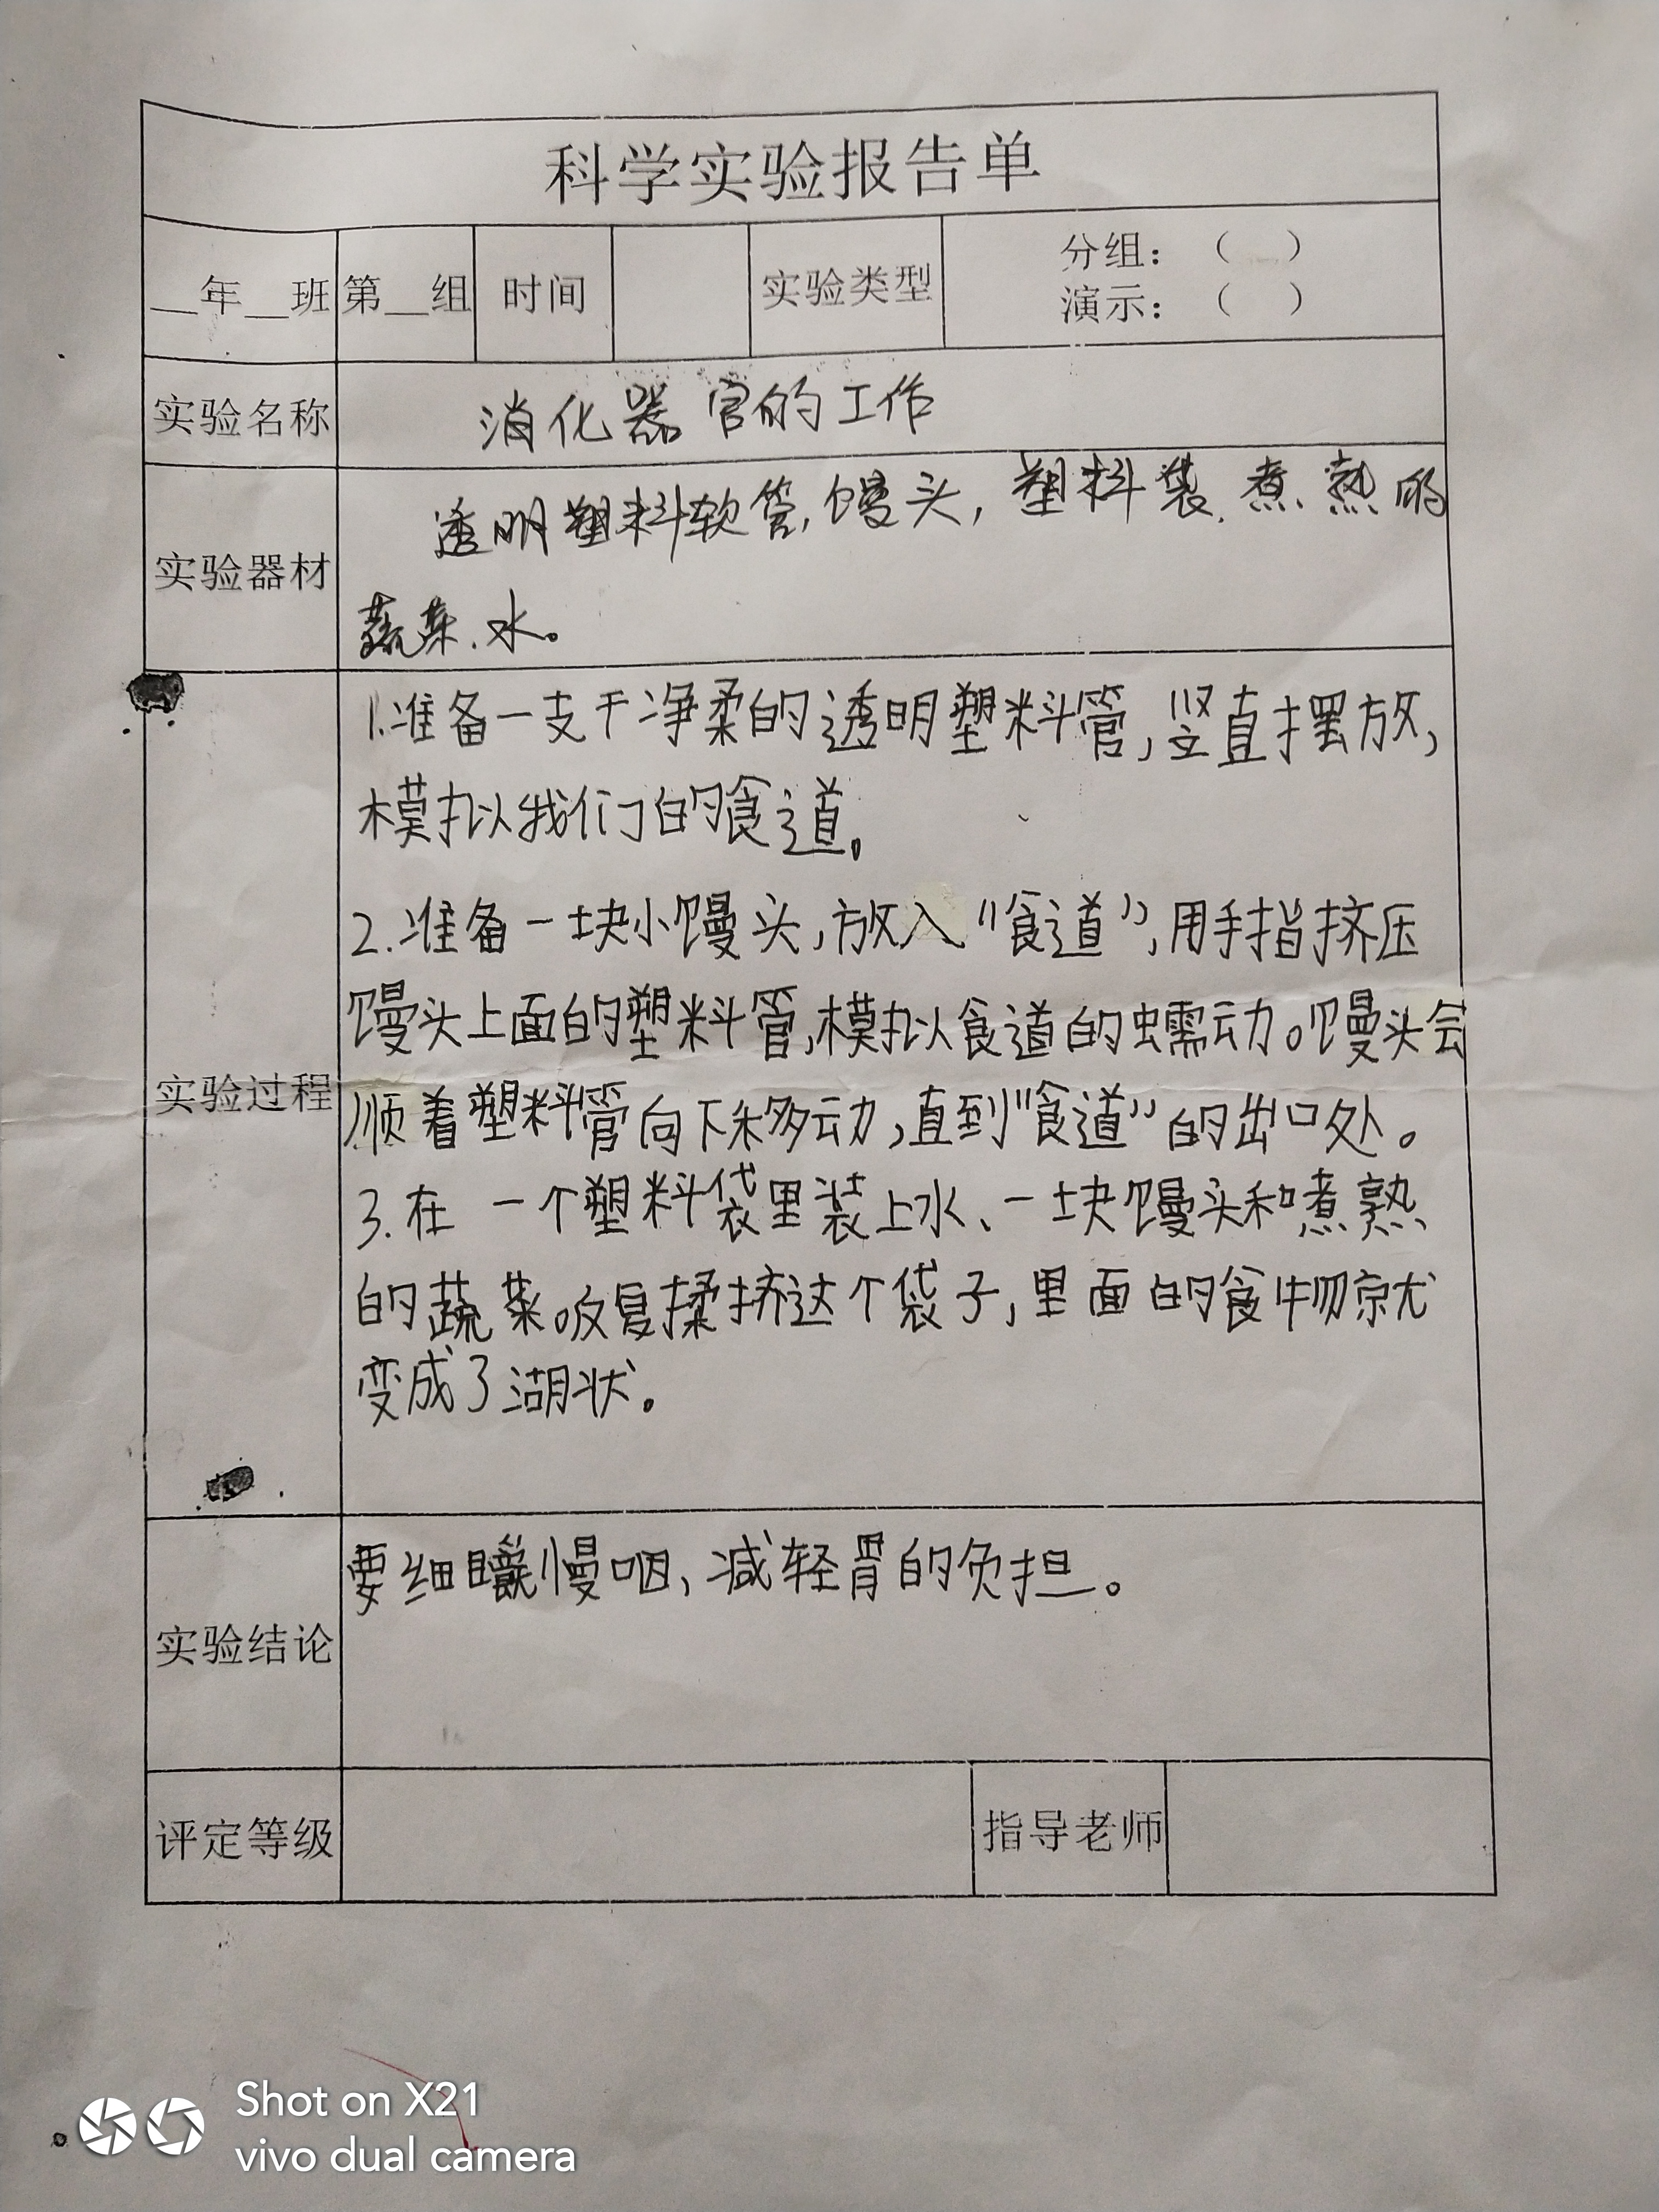 科学实验报告单
__年__班 第__组 时间 实验类型 分组：（ ）
演示：（ ）
实验名称 消化器官的工作
实验器材 透明塑料软管,馒头,塑料袋.煮熟的
蔬菜.水。
实验过程
1.准备一支干净柔的透明塑料管,竖直摆放,
模拟我们的食道。
2.准备一块小馒头,放入“食道”,用手指挤压
馒头上面的塑料管,模拟食道的蠕动。馒头会
顺着塑料管向下移动,直到“食道”的出口处。
3.在一个塑料袋里装上水、一块馒头和煮熟
的蔬菜。反复揉挤这个袋子,里面的食物就
变成了湖状。
实验结论
要细嚼慢咽,减轻胃的负担。
评定等级 指导老师
Shot on X21
vivo dual camera